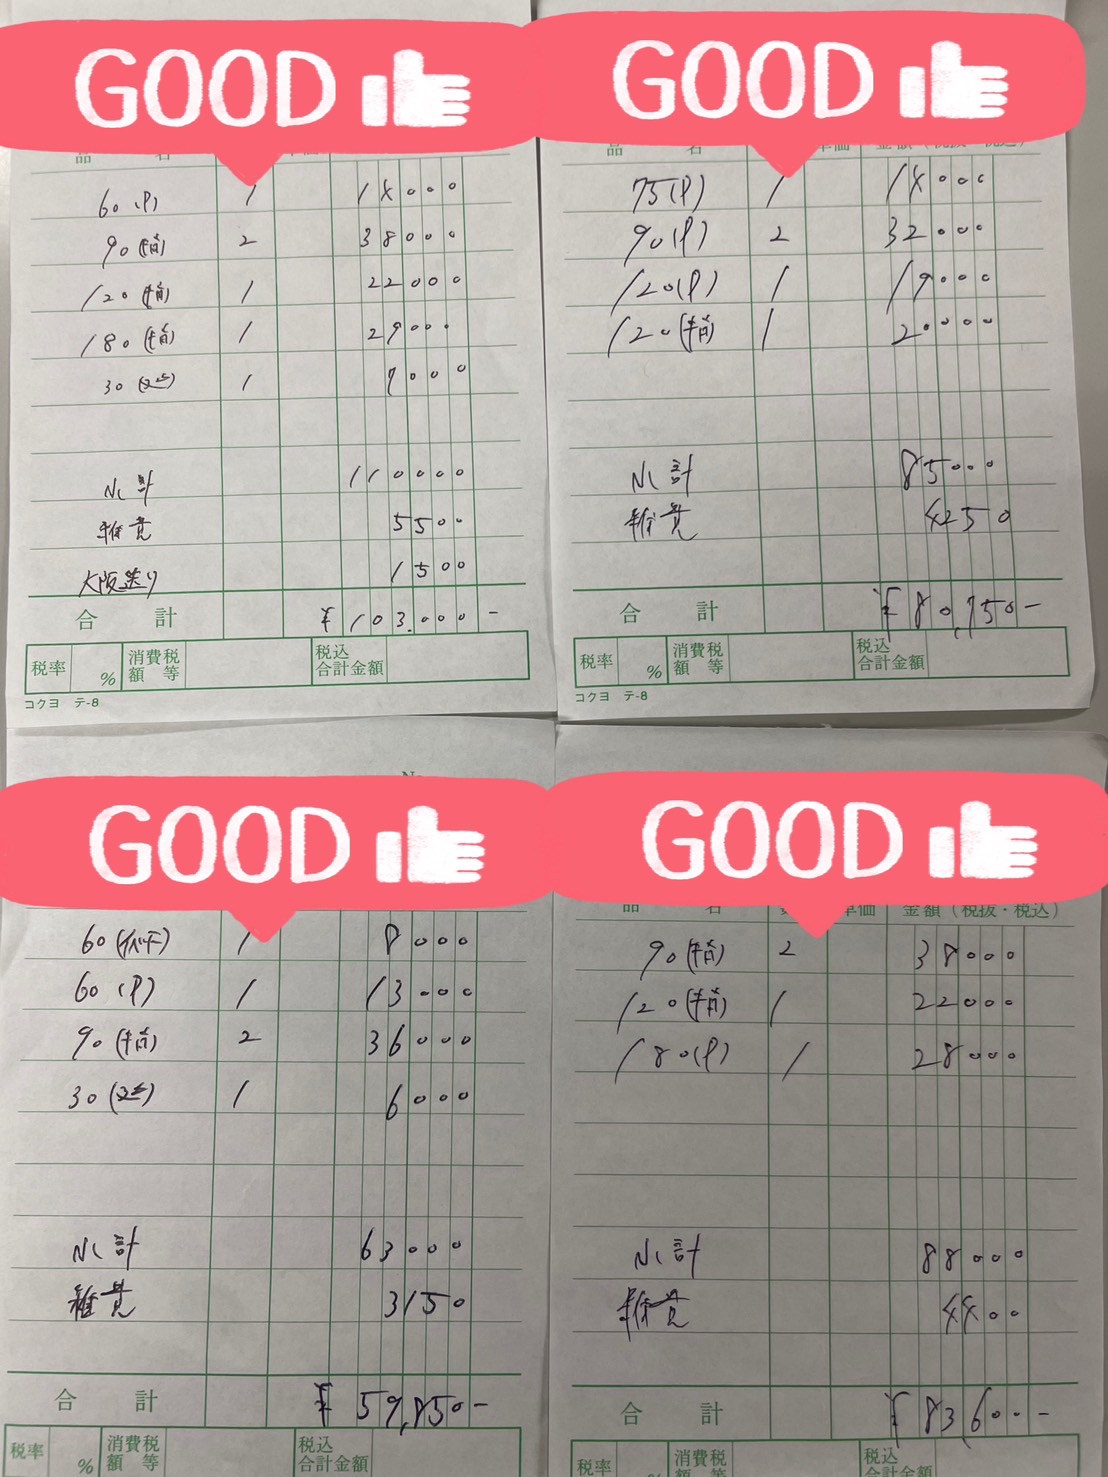 GOOD
品 名
60(P) 1 14000
90(指) 2 38000
120(指) 1 22000
180(指) 1 29000
30 1 7000
小計 110000
雑費 5500
大阪送り 1500
合 計 ¥103.000-
税率 % 消費税額等 税込合計金額
コクヨ テ-8
GOOD
品 名 単価 金額(税抜・税込)
75(P) 1 14000
90(P) 2 32000
120(P) 1 19000
120(指) 1 20000
小計 85000
雑費 4250
合 計 ¥80,750-
税率 % 消費税額等 税込合計金額
コクヨ テ-8
GOOD
60(イベント) 1 8000
60(P) 1 13000
90(指) 2 36000
30 1 6000
小計 63000
雑費 3150
合 計 ¥59,850-
税率 % 消費税額等 税込合計金額
GOOD
品 名 単価 金額(税抜・税込)
90(指) 2 38000
120(指) 1 22000
180(P) 1 28000
小計 88000
雑費 4400
合 計 ¥83,600-
税率 % 消費税額等 税込合計金額